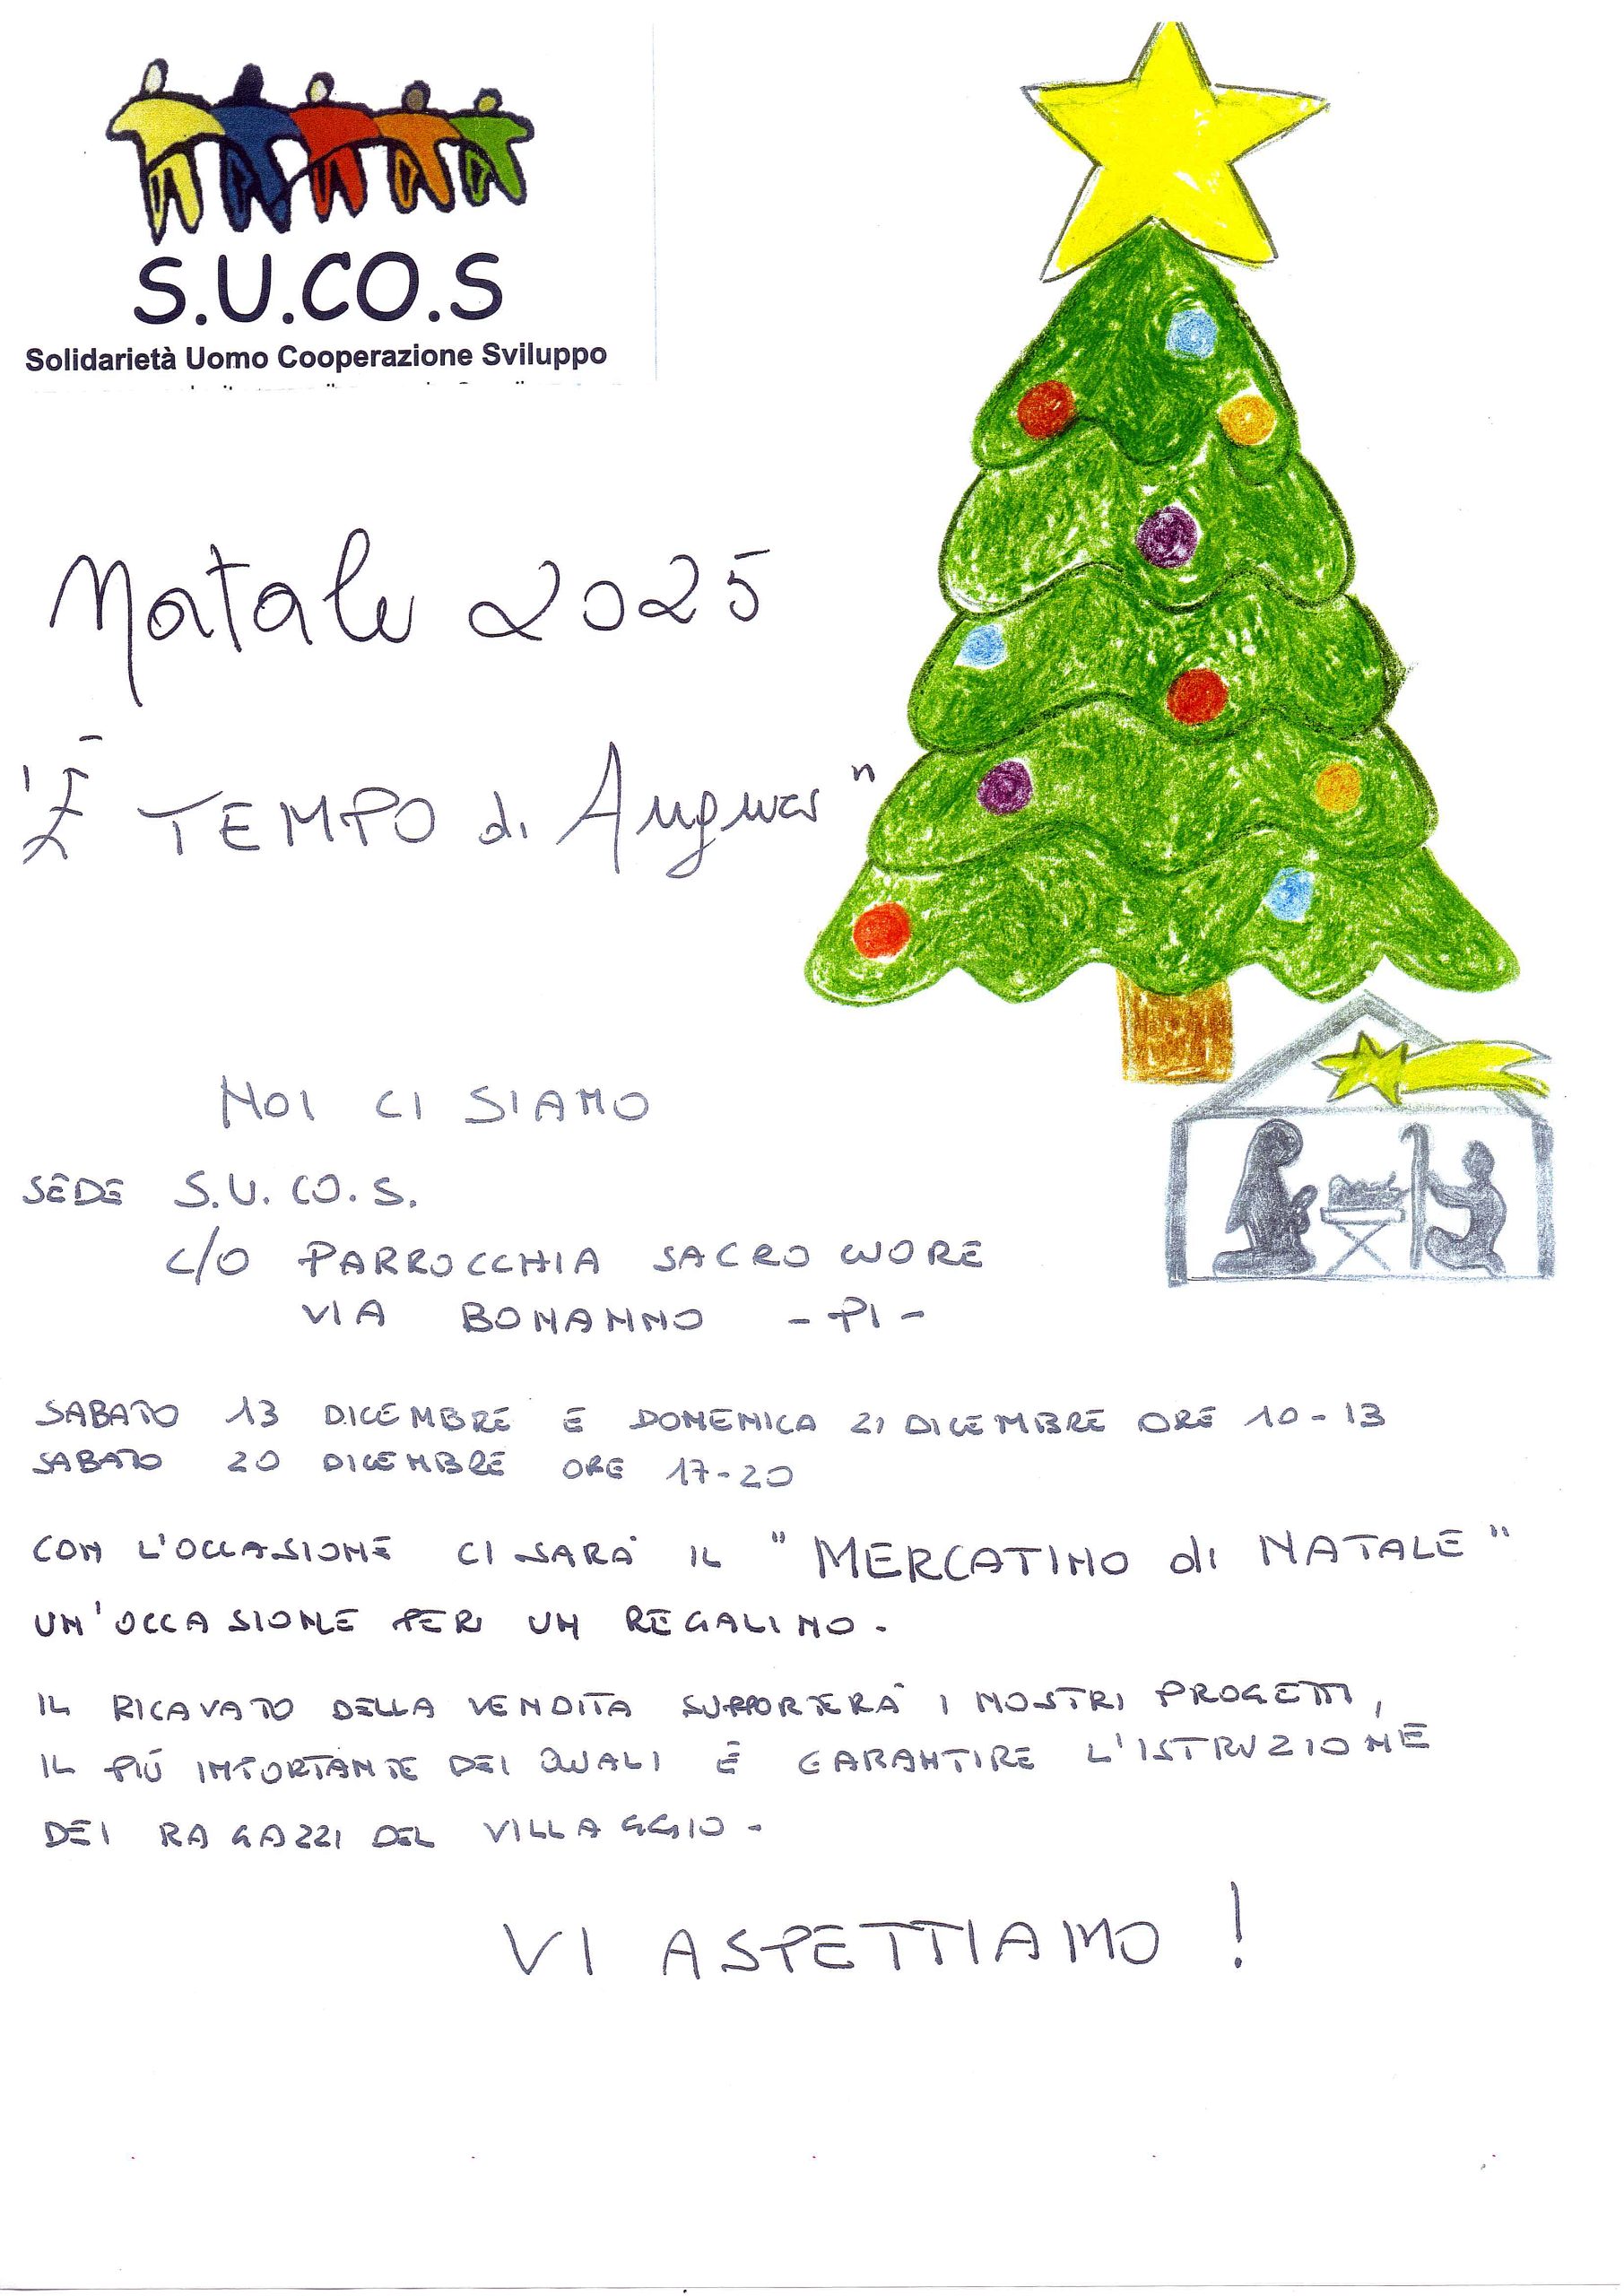 S.U.CO.S
Solidarietà Uomo Cooperazione Sviluppo
Natale 2025
"È TEMPO di Auguri"
NOI CI SIAMO
SEDE S.U.CO.S.
C/O PARROCCHIA SACRO CUORE
VIA BONANNO - PI -
SABATO 13 DICEMBRE E DOMENICA 21 DICEMBRE ORE 10-13
SABATO 20 DICEMBRE ORE 17-20
CON L'OCCASIONE CI SARÀ IL "MERCATINO di NATALE"
UN'OCCASIONE PER UN REGALINO.
IL RICAVATO DELLA VENDITA SUPPORTERÀ I NOSTRI PROGETTI,
IL PIÙ IMPORTANTE DEI QUALI È GARANTIRE L'ISTRUZIONE
DEI RAGAZZI DEL VILLAGGIO.
VI ASPETTIAMO!